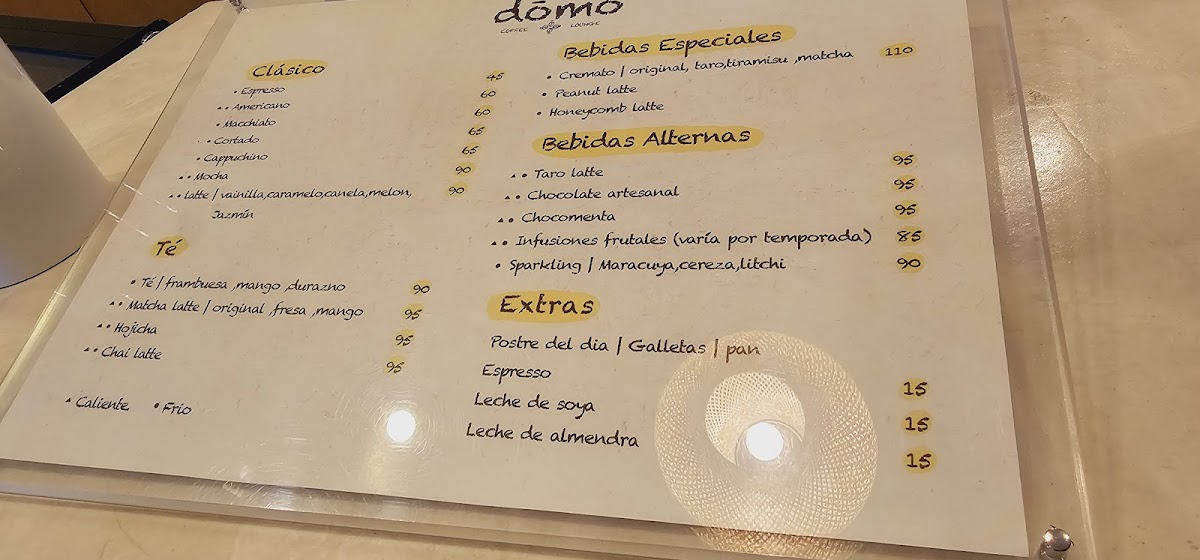 dōmo
COFFEE LOUNGE
Clásico
• Espresso 45
▲ • Americano 60
• Macchiato 60
• Cortado 65
• Cappuchino 65
▲ • Mocha 90
▲ • latte / vainilla,caramelo,canela,melon, 90
Jazmín
Té
• Té / frambuesa ,mango ,durazno 90
▲ • Matcha latte / original ,fresa ,mango 95
▲ • Hojicha 95
▲ • Chai latte 95
▲ Caliente • Frio
Bebidas Especiales
• Cremato / original, taro,tiramisu ,matcha 110
• Peanut latte
• Honeycomb latte
Bebidas Alternas
▲ • Taro latte 95
▲ • Chocolate artesanal 95
▲ • Chocomenta 95
▲ • Infusiones frutales (varía por temporada) 85
• Sparkling / Maracuya,cereza,litchi 90
Extras
Postre del dia / Galletas / pan
Espresso 15
Leche de soya 15
Leche de almendra 15